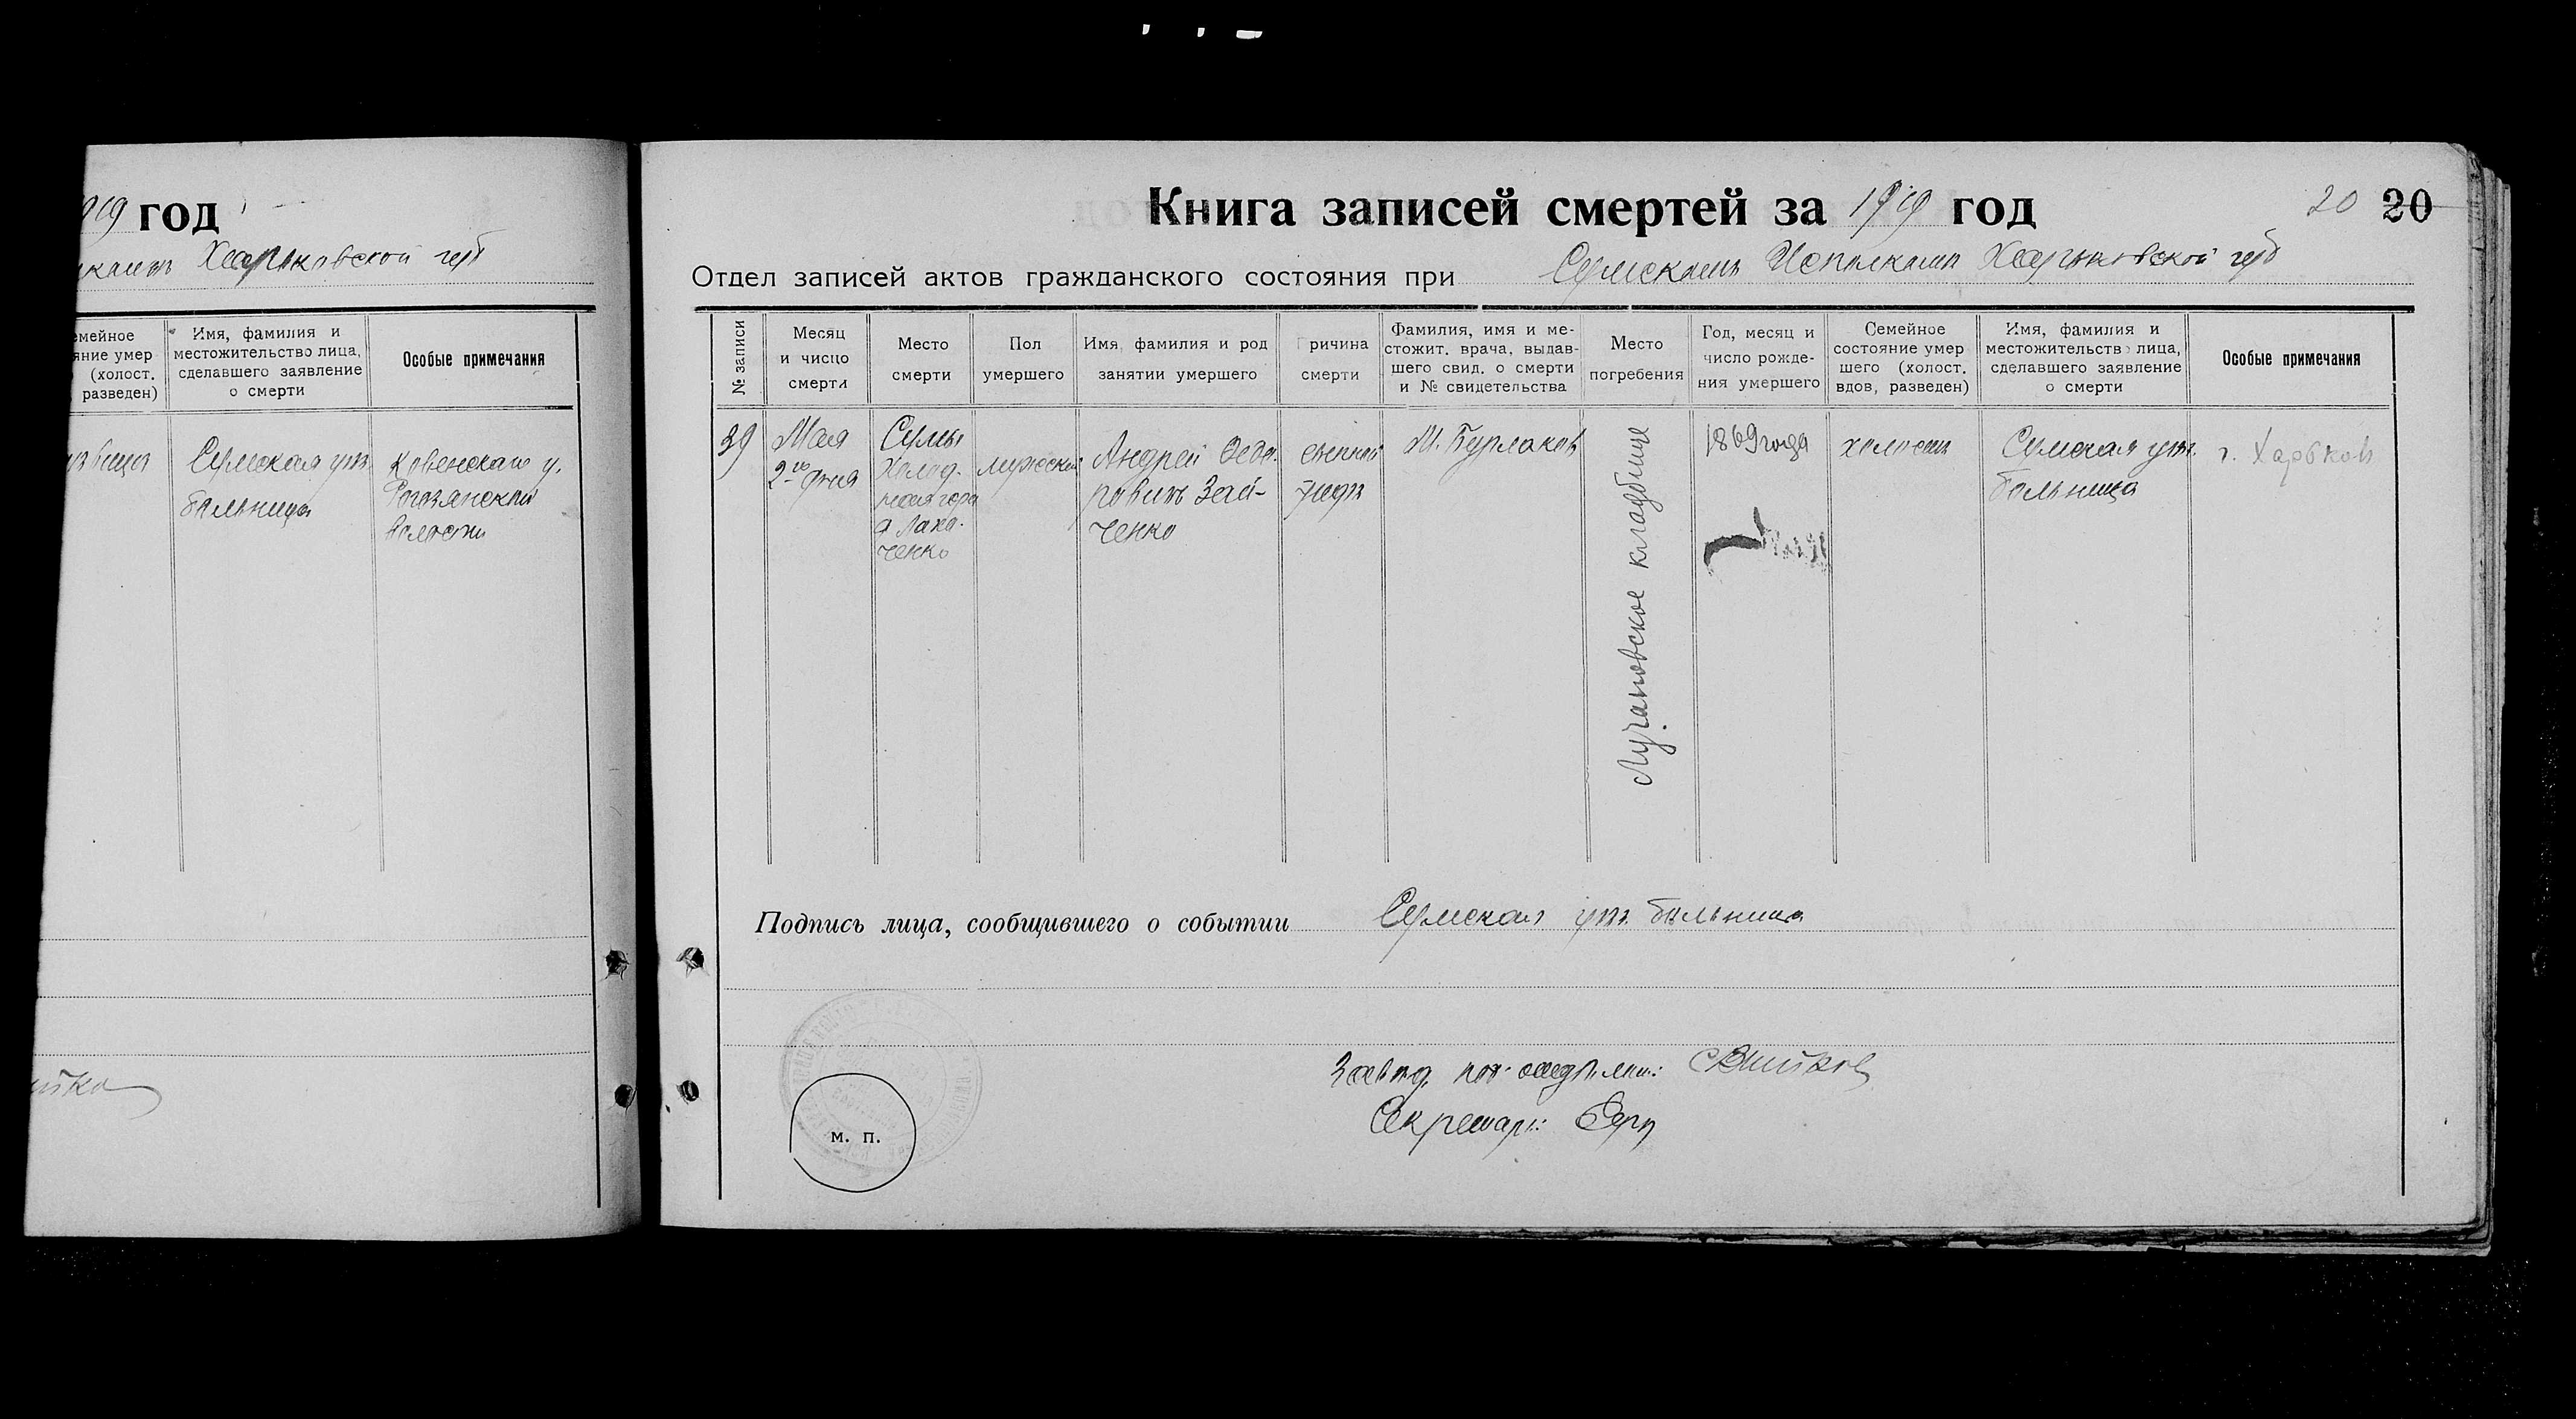 919 год
Харьковской губ
семейное
яние умер
(холост.
разведен)
Имя, фамилия и
местожительство лица,
сделавшего заявление
о смерти
Особые примечания
Сумская уѣз.
больница
Ковенской у.
волости
Книга записей смертей за 1919 год
20 20
Отдел записей актов гражданского состояния при Сумскомъ Исполкомѣ Харьковской губ
№ записи
Месяц
и чисцо
смерти
Место
смерти
Пол
умершего
Имя, фамилия и род
занятии умершего
Причина
смерти
Фамилия, имя и ме-
стожит. врача, выдав-
шего свид. о смерти
и № свицетельства
Место
погребения
Год, месяц и
число рожде-
ния умершего
Семейное
состояние умер
шего (холост.
вдов, разведен)
Имя, фамилия и
местожительство лица,
сделавшего заявление
о смерти
Особые примечания
39
Мая
2го дня
Сумы
Холод-
ная гора
ченко
мужской
Андрей Федо-
ровичъ Зай-
ченко
сыпной
тифъ
М. Бурлаков
Лучановское кладбище
1869 года
холостъ
Сумская уѣз.
больница
г. Харьков
Подпись лица, сообщившего о событии Сумская уѣз. больница
Завѣд. под-отдѣлом:
Секретарь:
м. п.